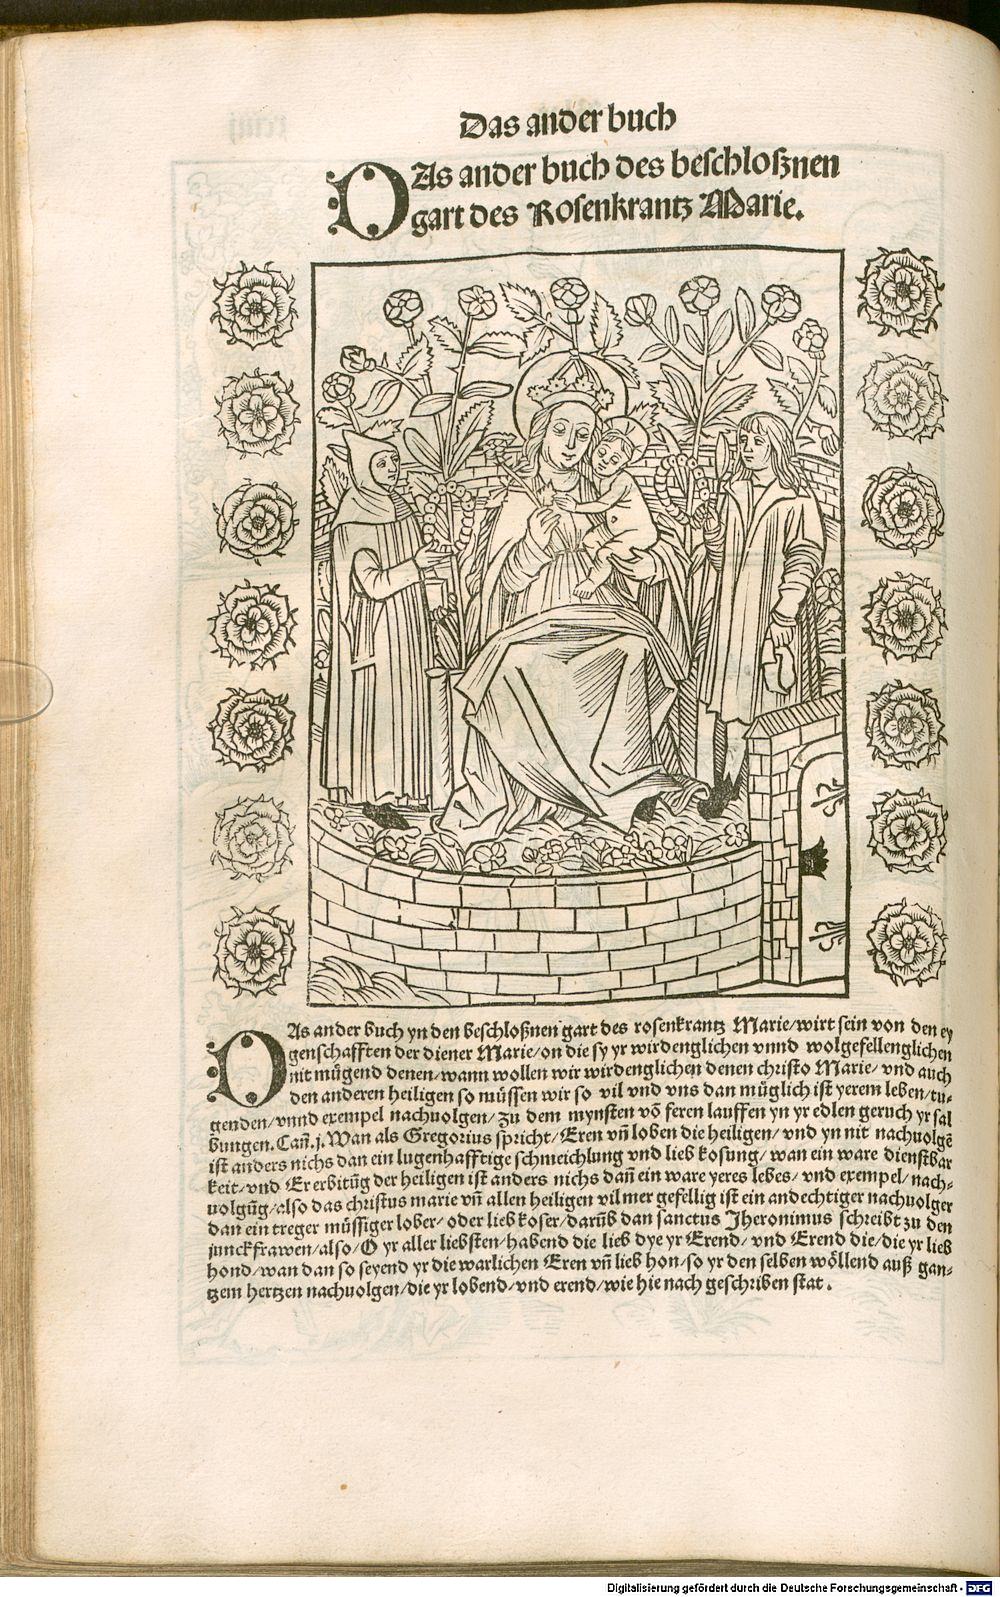 Das ander buch
DAs ander buch des beschloßnen
gart des Rosenkrantz Marie.
DAs ander buch yn den beschloßnen gart des rosenkrantz Marie/wirt sein von den ey
genschafften der diener Marie/on die sy yr wirdenglichen vnnd wolgefellenglichen
nit mügend denen/wann wollen wir wirdenglichen denen christo Marie/vnd auch
den anderen heiligen so müssen wir so vil vnd vns dan müglich ist yerem leben/tu-
genden/vnnd exempel nachuolgen/zu dem mynsten vō feren lauffen yn yr edlen geruch yr sal
bungen.Cañ.j.Wan als Gregorius spricht/Eren vñ loben die heiligen/vnd yn nit nachuolgē
ist anders nichs dan ein lugenhafftige schmeichlung vnd lieb kosung/wan ein ware dienstbar
keit/vnd Er erbitūg der heiligen ist anders nichs dañ ein ware yeres lebēs/vnd exempel/nach-
uolgūg/also das christus marie vñ allen heiligen vil mer gefellig ist ein andechtiger nachuolger
dan ein treger müssiger lober/oder lieb koser/darūb dan sanctus Jheronimus schreibt zu den
junckfrawen/also/O yr aller liebsten/habend die lieb dye yr Erend/vnd Erend die/die yr lieb
hond/wan dan so seyend yr die warlichen Eren vñ lieb hon/so yr den selben wöllend auß gan-
tzem hertzen nachuolgen/die yr lobend/vnd erend/wie hie nach geschriben stat.
Digitalisierung gefördert durch die Deutsche Forschungsgemeinschaft - DFG